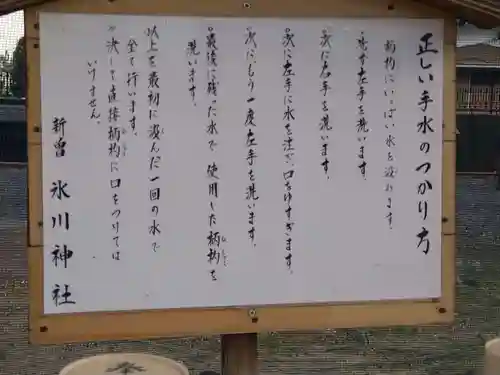 正しい手水のつかり方
柄杓にいっぱい水を汲れます。
・先ず左手を洗います。
・次に右手を洗います。
・次に左手に水を注ぎ、口をゆすぎます。
・次に、もう一度左手を洗います。
・最後に残った水で使用した柄杓を
洗います。
以上を最初に汲んだ一回の水で
全て行います。
・決して直接柄杓に口をつけては
いけません。
新曽 氷川神社
本